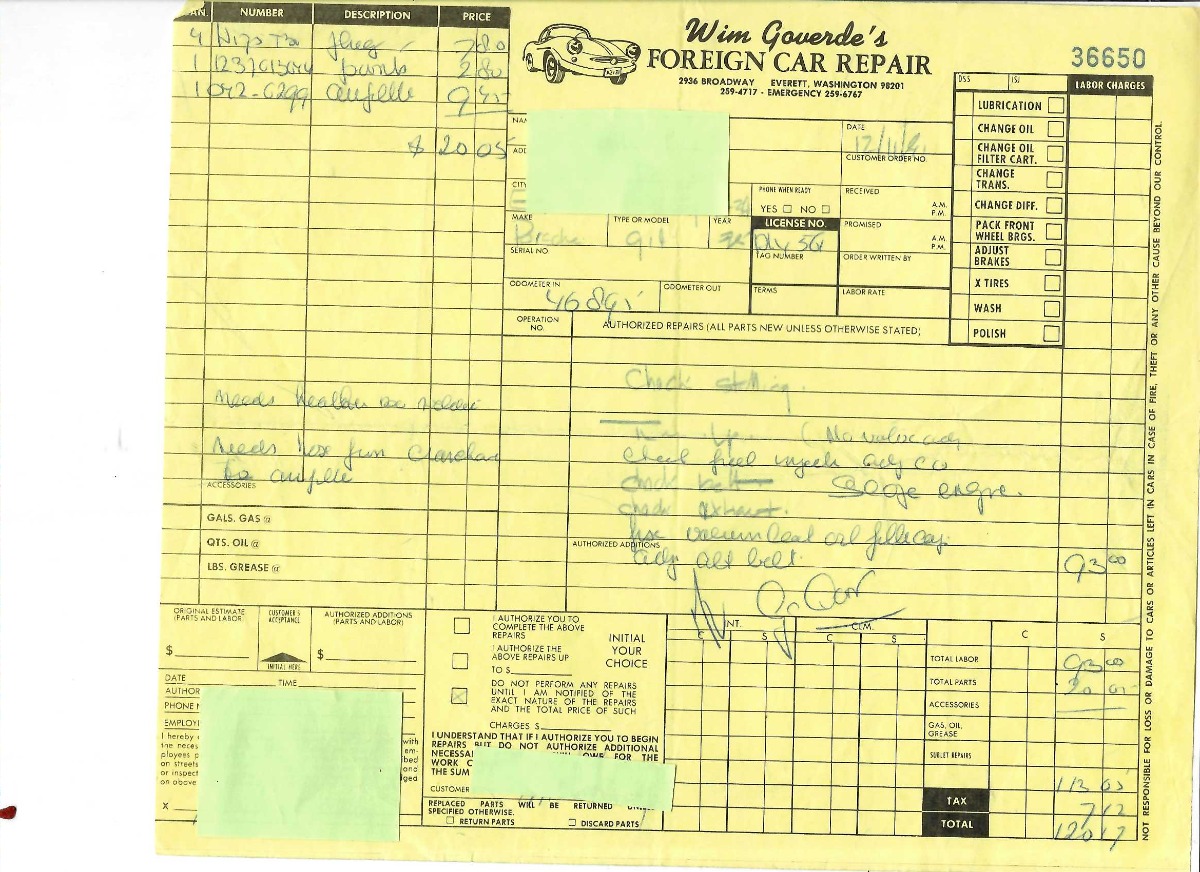 Wim Goverde's
FOREIGN CAR REPAIR
2936 BROADWAY EVERETT, WASHINGTON 98201
259-4717 - EMERGENCY 259-6767
36650
AN. NUMBER DESCRIPTION PRICE
4 plug 7 80
1 points 2 80
1 042-6299 9 45
$ 20 05
DATE
CUSTOMER ORDER NO.
CITY
PHONE WHEN READY
YES NO
RECEIVED
A.M.
P.M.
MAKE TYPE OR MODEL YEAR
914
LICENSE NO.
PROMISED
A.M.
P.M.
SERIAL NO.
TAG NUMBER
ORDER WRITTEN BY
ODOMETER IN ODOMETER OUT
46895
TERMS
LABOR RATE
DSS
LABOR CHARGES
LUBRICATION
CHANGE OIL
CHANGE OIL
FILTER CART.
CHANGE
TRANS.
CHANGE DIFF.
PACK FRONT
WHEEL BRGS.
ADJUST
BRAKES
X TIRES
WASH
POLISH
OPERATION
NO.
AUTHORIZED REPAIRS (ALL PARTS NEW UNLESS OTHERWISE STATED)
Check stalling.
(No valve adj
Check fuel injec adj CO
check belt
check exhaust.
fix vacuum leak oil filler cap
adj alt belt.
93 00
needs
needs hose from
ACCESSORIES
GALS. GAS @
QTS. OIL @
LBS. GREASE @
AUTHORIZED ADDITIONS
ORIGINAL ESTIMATE
(PARTS AND LABOR)
CUSTOMER'S
ACCEPTANCE
AUTHORIZED ADDITIONS
(PARTS AND LABOR)
$
INITIAL HERE
$
DATE TIME
AUTHOR
PHONE N
EMPLOY
I hereby
the neces
ployees p
on streets
or inspect
on above
with
em-
bed
and
ged
X
I AUTHORIZE YOU TO
COMPLETE THE ABOVE
REPAIRS
I AUTHORIZE THE
ABOVE REPAIRS UP
TO $
INITIAL
YOUR
CHOICE
DO NOT PERFORM ANY REPAIRS
UNTIL I AM NOTIFIED OF THE
EXACT NATURE OF THE REPAIRS
AND THE TOTAL PRICE OF SUCH
CHARGES $
I UNDERSTAND THAT IF I AUTHORIZE YOU TO BEGIN
REPAIRS BUT DO NOT AUTHORIZE ADDITIONAL
NECESSA OWE FOR THE
WORK C
THE SUM
CUSTOMER
REPLACED PARTS WILL BE RETURNED
SPECIFIED OTHERWISE.
RETURN PARTS DISCARD PARTS
INT. CLM.
C S C S C S
TOTAL LABOR 93 00
TOTAL PARTS 20 05
ACCESSORIES
GAS, OIL,
GREASE
SUBLET REPAIRS
113 05
TAX 7 12
TOTAL 120 17
NOT RESPONSIBLE FOR LOSS OR DAMAGE TO CARS OR ARTICLES LEFT IN CARS IN CASE OF FIRE, THEFT OR ANY OTHER CAUSE BEYOND OUR CONTROL.